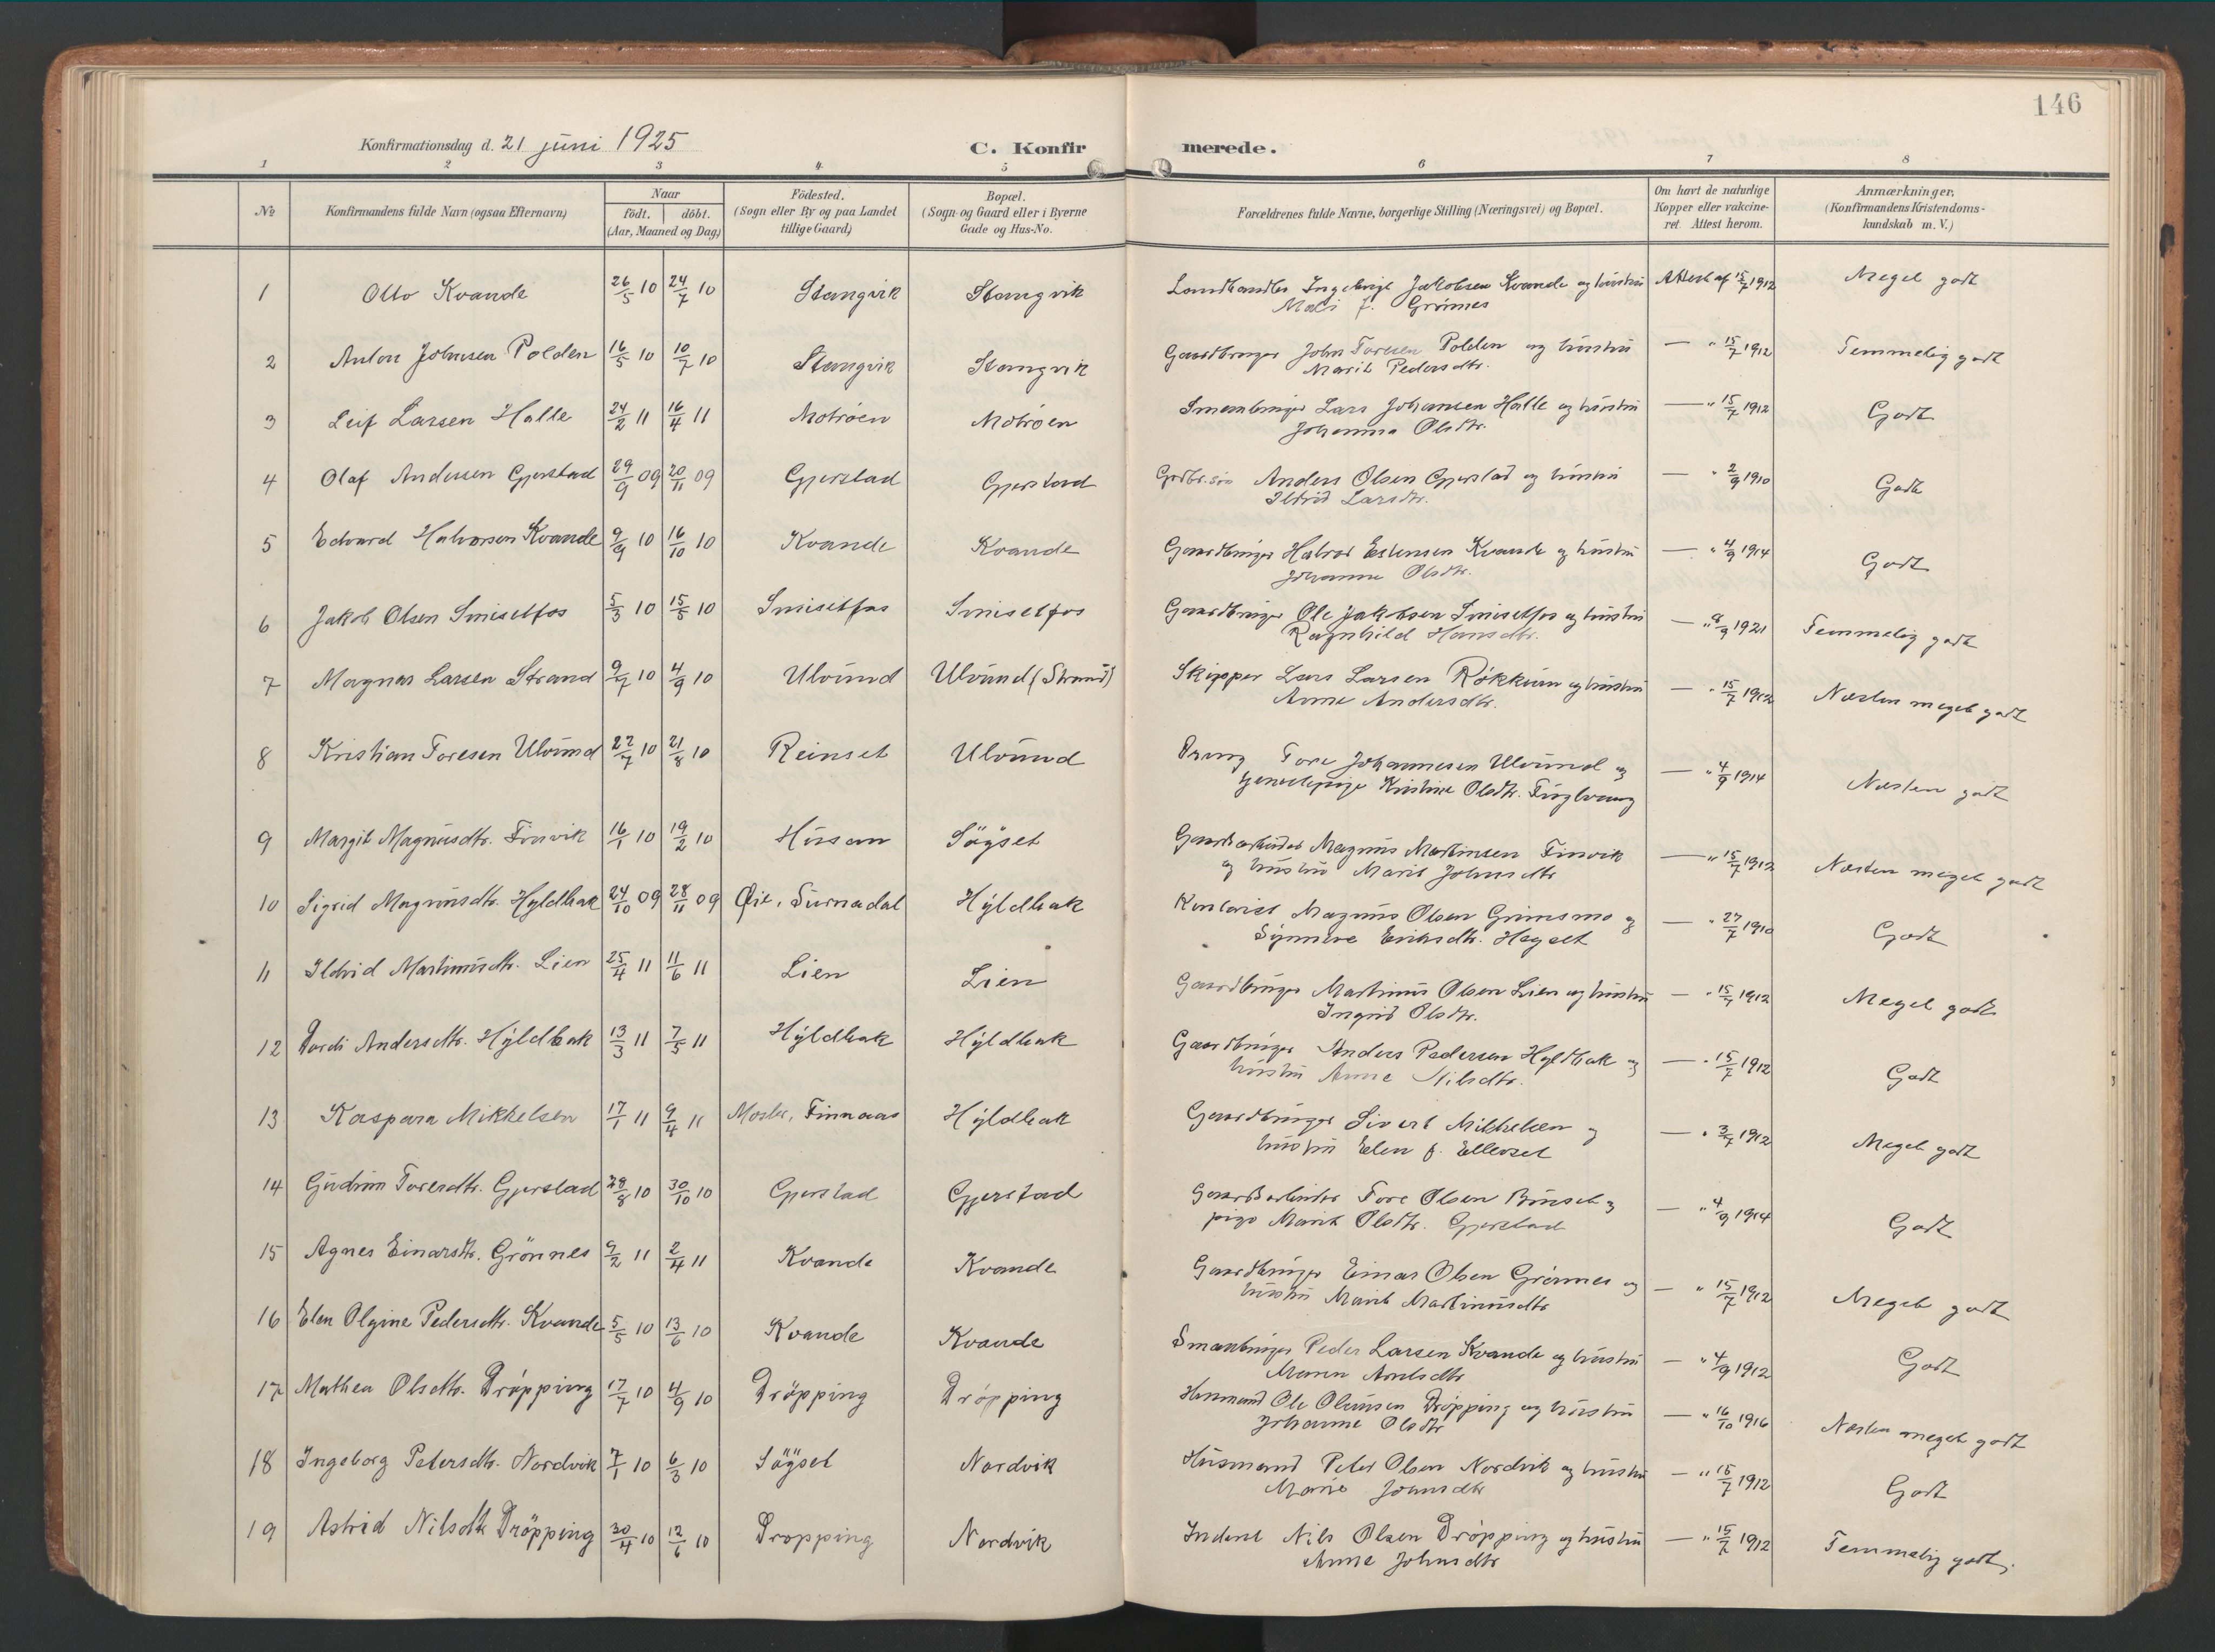 146
Konfirmationsdag d. 21 juni 1925
C. Konfirmerede.
1 2 3 4 5 6 7 8
No
Konfirmandens fulde Navn (ogsaa Efternavn)
Naar
født. døbt.
(Aar, Maaned og Dag)
Födested.
(Sogn eller By og paa Landet
tillige Gaard)
Bopæl.
(Sogn og Gaard eller i Byerne
Gade og Hus-No.
Forældrenes fulde Navne, borgerlige Stilling (Næringsvei) og Bopæl.
Om havt de naturlige
Kopper eller vakcine-
ret. Attest herom.
Anmærkninger.
(Konfirmandens Kristendoms-
kundskab m. V.)
1 Otto Kvande 26/5 10 24/7 10 Stangvik Stangvik Landhandler Ingebrigt Jakobsen Kvande og hustru Attest af 15/7 1912 Meget godt
Mali f. Grønnes
2 Anton Johnsen Polden 16/5 10 10/7 10 Stangvik Stangvik Gaardbruger John Toresen Polden og hustru — " 15/7 1912 Temmelig godt
Marit Pedersdtr.
3 Leif Larsen Halle 24/2 11 16/4 11 Motrøen Motrøen Smaabruger Lars Johansen Halle og hustru — " 15/7 1912 Godt
Johanna Olsdtr.
4 Olaf Andersen Gjerstad 29/9 09 20/11 09 Gjerstad Gjerstad Grdbr. Anders Olsen Gjerstad og hustru — " 2/9 1910 Godt
Ildrid Larsdtr.
5 Edvard Halvorsen Kvande 9/9 10 16/10 10 Kvande Kvande Gaardbruger Halvor Estensen Kvande og hustru — " 4/9 1914 Godt
Johanne Olsdtr.
6 Jakob Olsen Smisetfos 5/3 10 15/5 10 Smisetfos Smisetfos Gaardbruger Ole Jakobsen Smisetfos og hustru — " 8/9 1921 Temmelig godt
Ragnhild Hansdtr.
7 Magnar Larsen Strand 9/7 10 4/9 10 Ulvund Ulvund (Strand) Skipper Lars Larsen Røkkum og hustru — " 15/7 1912 Næsten meget godt
Anne Andersdtr.
8 Kristian Toresen Ulvund 22/7 10 21/8 10 Reinset Ulvund Tore Johannesen Ulvund og — " 4/9 1914 Næsten godt
Kristine Olsdtr. Fuglvaag
9 Margit Magnusdtr. Finvik 16/1 10 19/2 10 Husan Søyset Gaardarbeider Magnus Martinsen Finvik — " 15/7 1912 Næsten meget godt
og hustru Marit Johnsdtr
10 Sigrid Magnusdtr. Hyldbak 24/10 09 28/11 09 Øie, Surnadal Hyldbak Magnus Olsen Grimsmo og — " 27/7 1910 Godt
Synnøve Eriksdtr. Høgset
11 Ildrid Martinusdtr. Lien 25/4 11 11/6 11 Lien Lien Gaardbruger Martinus Olsen Lien og hustru — " 15/7 1912 Meget godt
Ingrid Olsdtr.
12 Dordi Andersdtr. Hyldbak 13/3 11 7/5 11 Hyldbak Hyldbak Gaardbruger Anders Pedersen Hyldbak og — " 15/7 1912 Godt
hustru Anne Nilsdtr.
13 Kaspara Mikkelsen 17/1 11 9/4 11 Moster, Finnaas Hyldbak Gaardbruger Sivert Mikkelsen og — " 3/7 1912 Meget godt
hustru Elen f. Ellevset
14 Gudrun Toresdtr. Gjerstad 28/8 10 30/10 10 Gjerstad Gjerstad Gaardarbeider Tore Olsen Bruset og — " 4/9 1914 Godt
pige Marit Olsdtr. Gjerstad
15 Agnes Einarsdtr. Grønnes 9/2 11 2/4 11 Kvande Kvande Gaardbruger Einar Olsen Grønnes og — " 15/7 1912 Meget godt
hustru Marit Martinusdtr
16 Elen Olgine Pedersdtr. Kvande 5/5 10 13/6 10 Kvande Kvande Smaabruger Peder Larsen Kvande og hustru — " 4/9 1912 Godt
Maren
17 Mathea Olsdtr. Drøpping 17/7 10 4/9 10 Drøpping Drøpping Husmand Ole Olausen Drøpping og hustru — " 16/10 1916 Næsten meget godt
Johanne Olsdtr
18 Ingeborg Petersdtr. Nordvik 7/1 10 6/3 10 Søyset Nordvik Husmand Peter Olsen Nordvik og hustru — " 15/7 1912 Godt
Marie Johnsdtr
19 Astrid Nilsdtr Drøpping 30/4 10 12/6 10 Drøpping Nordvik Inderst Nils Olsen Drøpping og hustru — " 15/7 1912 Temmelig godt.
Anne Johnsdtr